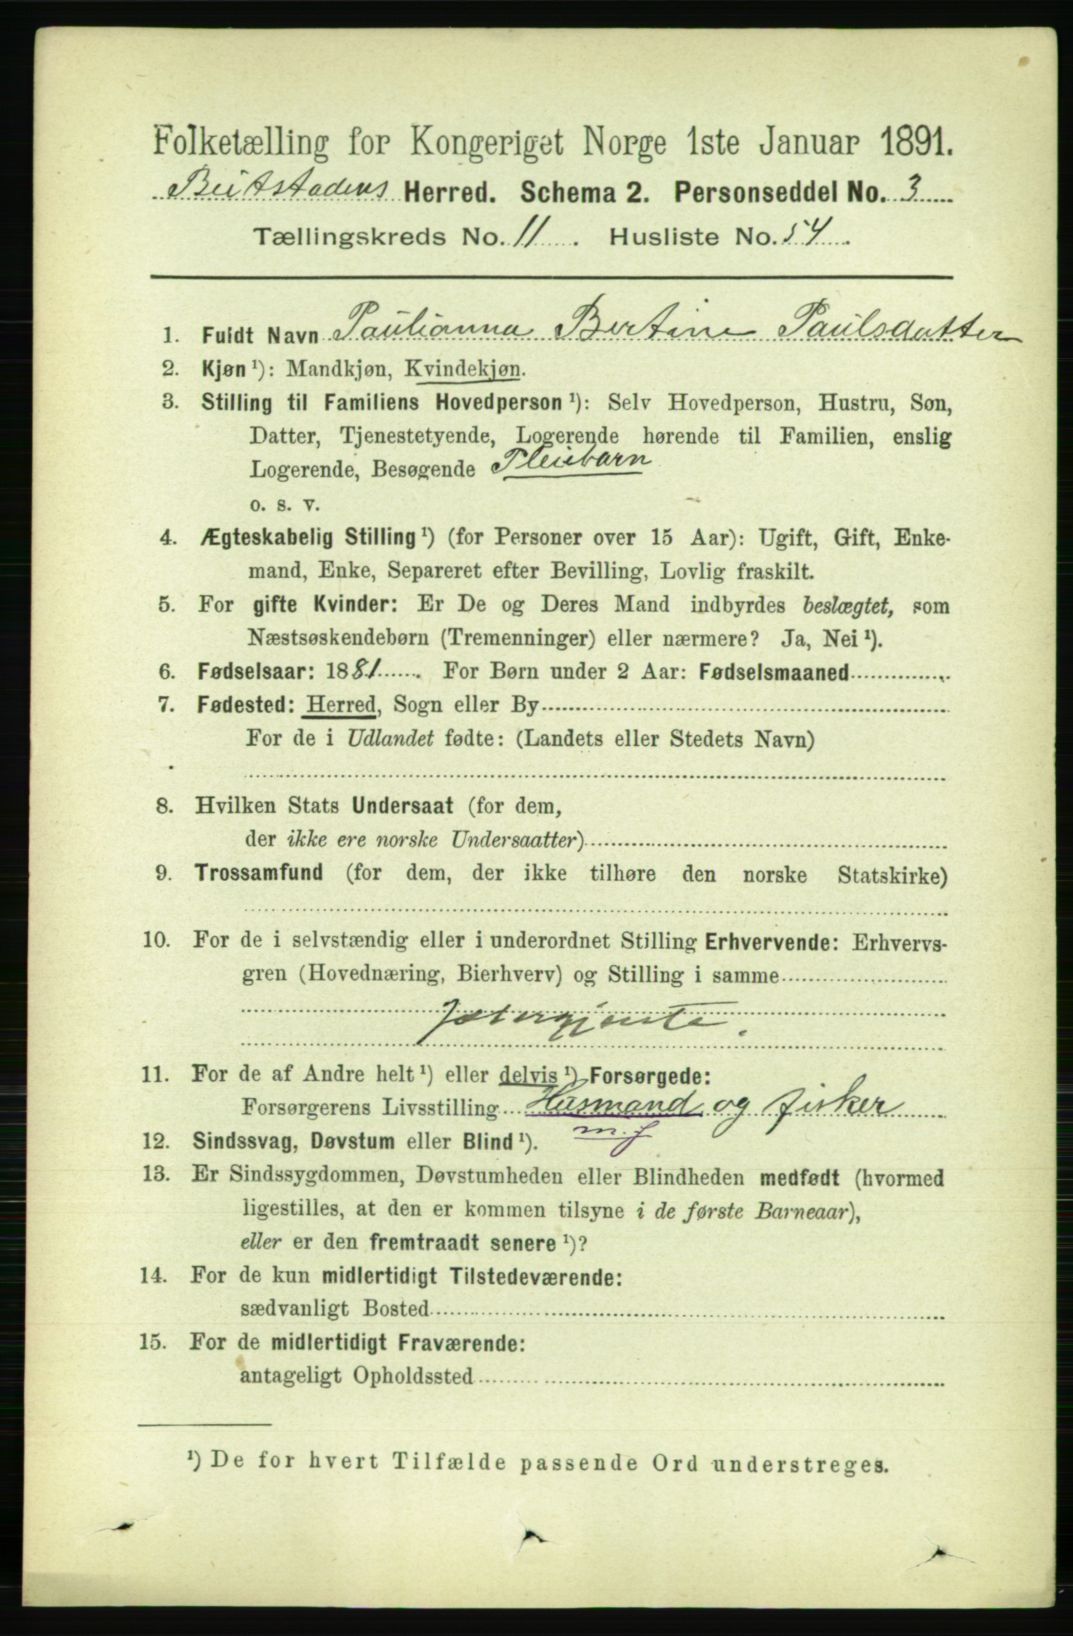 Folketælling for Kongeriget Norge 1ste Januar 1891.
Beitstadens Herred. Schema 2. Personseddel No. 3
Tællingskreds No. 11. Husliste No. 54.
1. Fuldt Navn Paulianna Bertine Paulsdatter
2. Kjøn ¹): Mandkjøn, Kvindekjøn.
3. Stilling til Familiens Hovedperson ¹): Selv Hovedperson, Hustru, Søn,
Datter, Tjenestetyende, Logerende hørende til Familien, enslig
Logerende, Besøgende Pleiebarn
o. s. v.
4. Ægteskabelig Stilling ¹) (for Personer over 15 Aar): Ugift, Gift, Enke-
mand, Enke, Separeret efter Bevilling, Lovlig fraskilt.
5. For gifte Kvinder: Er De og Deres Mand indbyrdes beslægtet, som
Næstsøskendebørn (Tremenninger) eller nærmere? Ja, Nei ¹).
6. Fødselsaar: 1881. For Børn under 2 Aar: Fødselsmaaned
7. Fødested: Herred, Sogn eller By
For de i Udlandet fødte: (Landets eller Stedets Navn)
8. Hvilken Stats Undersaat (for dem,
der ikke ere norske Undersaatter)
9. Trossamfund (for dem, der ikke tilhøre den norske Statskirke)
10. For de i selvstændig eller i underordnet Stilling Erhvervende: Erhvervs-
gren (Hovednæring, Bierhverv) og Stilling i samme
Jætergjente.
11. For de af Andre helt ¹) eller delvis ¹) Forsørgede:
Forsørgerens Livsstilling Husmand og fisker
m. j
12. Sindssvag, Døvstum eller Blind ¹).
13. Er Sindssygdommen, Døvstumheden eller Blindheden medfødt (hvormed
ligestilles, at den er kommen tilsyne i de første Barneaar),
eller er den fremtraadt senere ¹)?
14. For de kun midlertidigt Tilstedeværende:
sædvanligt Bosted
15. For de midlertidigt Fraværende:
antageligt Opholdssted
¹) De for hvert Tilfælde passende Ord understreges.